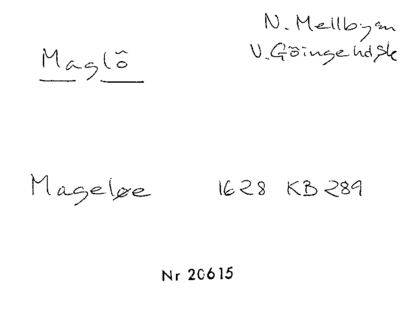 Maglö
N. Mellbyan
V. Göingehdsk
Mageløe 1628 KB 289
Nr 20615